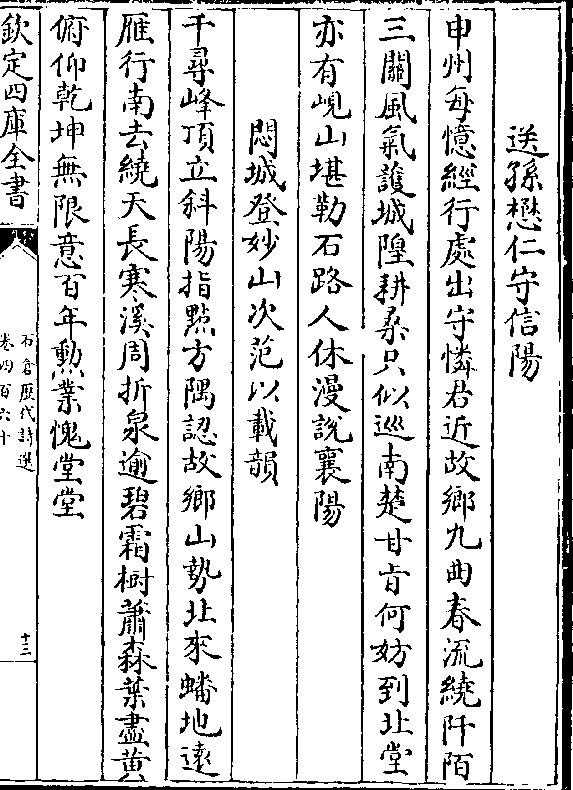 送孫懋仁守信陽
申州每憶經行處出守憐君近故鄉九曲春流繞阡陌
三關風氣護城隍耕桑只似巡南楚甘旨何妨到北堂
亦有峴山堪勒石路人休漫說襄陽
悶城登妙山次范以載韻
千尋峰頂立斜陽指點方隅認故鄉山勢北來蟠地遠
雁行南去繞天長寒溪周折泉逾碧霜樹蕭森葉盡黄
俯仰乾坤無限意百年勲業愧堂堂
欽定四庫全書
石倉歷代詩選
卷四百六十
十二